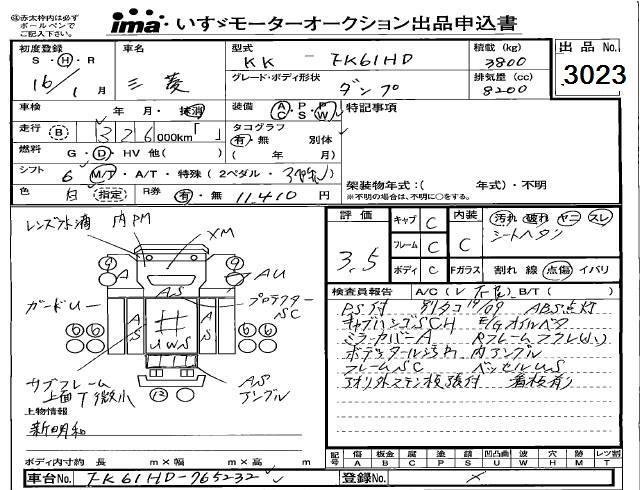 ㊟赤太枠内は必ずボールペンでご記入下さい。
ima いすゞモーターオークション出品申込書
初度登録 S・H・R 16/1月
車名 三菱
型式 KK-FK61HD
積載(kg) 3800
出品No. 3023
グレード・ボディ形状 ダンプ
排気量(cc) 8200
車検 年 月・抹消
装備 A/C・P/S・P/W
特記事項
走行 B 326,000km「 」
タコグラフ 有・無 別体
( 年 月)
燃料 G・D・HV 他( )
シフト 6 M/T・A/T・特殊(2ペダル・ )
架装物年式:( 年式)・不明
※不明の場合は、不明に○をする。
色 白 指定
R券 有・無 11,410円
評価 3.5
キャブ C
フレーム C
ボディ C
内装 C
Fガラス
汚れ 破れ ヤニ スレ
シートヘタリ
割れ 線 点傷 イバリ
レンズ水滴
内PM
XM
A
AU
AS
ガードU
プロテクターSC
AS
AS
UWS
6 6
6 6
サブフレーム上面T微小
12
AS
アングル
検査員報告 A/C(レ不良) B/T( )
PS付 ABS点灯
キャブハンゴSCH E/Gオイルベタ
ミラーカバーA
内アングル
フレームSC ベッセルUS
看板有り
上物情報
新明和
ボディ内寸約 長 m×幅 m×高 m
記号 傷A 板金B 腐C 塗P 錆S 凹凸曲U 波W 穴H 跡M レツ割T
車台No. FK61HD-765232
登録No.